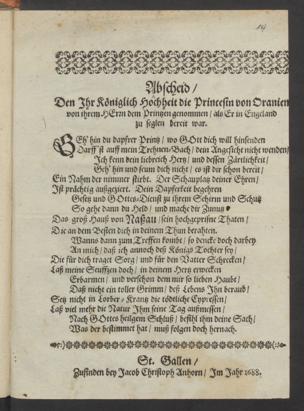 14
Abscheid /
Den Ihr Königlich Hochheit die Princesin von Oranien
von ihrem HErrn dem Printzen genommen / als Er in Engeland
zu seglen bereit war.
GEh' hin du dapfrer Printz / wo GOtt dich will hinsenden
Darff'st auff mein Threnen-Bach / dein Angesicht nicht wenden /
Ich kenn dein liebreich Hertz / und dessen Zärtlichkeit /
Geh' hin und seum dich nicht / es ist dir schon bereit /
Ein Nahm der nimmer stirbt. Der Schauplatz deiner Ehren /
Ist prächtig außgeziert. Dein Dapferkeit begehren
Gesetz und GOttes-Dienst zu ihrem Schirm und Schutz
So gehe dann du Held / und mache dir Zunutz
Das groß Hauß von Naßau / sein hochgepriesne Thaten /
Die an dem Besten dich in deinem Thun berahten.
Wanns dann zum Treffen kombt / so dencke doch darbey
An mich / daß ich annoch deß Königs Tochter sey /
Die für dich traget Sorg / und für den Vatter Schrecken /
Laß meine Seufftzen doch / in deinem Hertz erwecken
Erbarmen / und verschon dem mir so lieben Haubt /
Daß nicht ein toller Grimm / deß Lebens Ihn beraub /
Setz nicht in Lorber-Krantz die tödtliche Cypressen /
Laß viel mehr die Natur Ihm seine Tag außmessen /
Nach GOttes heilgem Schluß / besiht ihm deine Sach /
Was der bestimmet hat / muß folgen doch hernach.
St. Gallen /
Zufinden bey Jacob Christoph Anhorn / Im Jahr 1688.